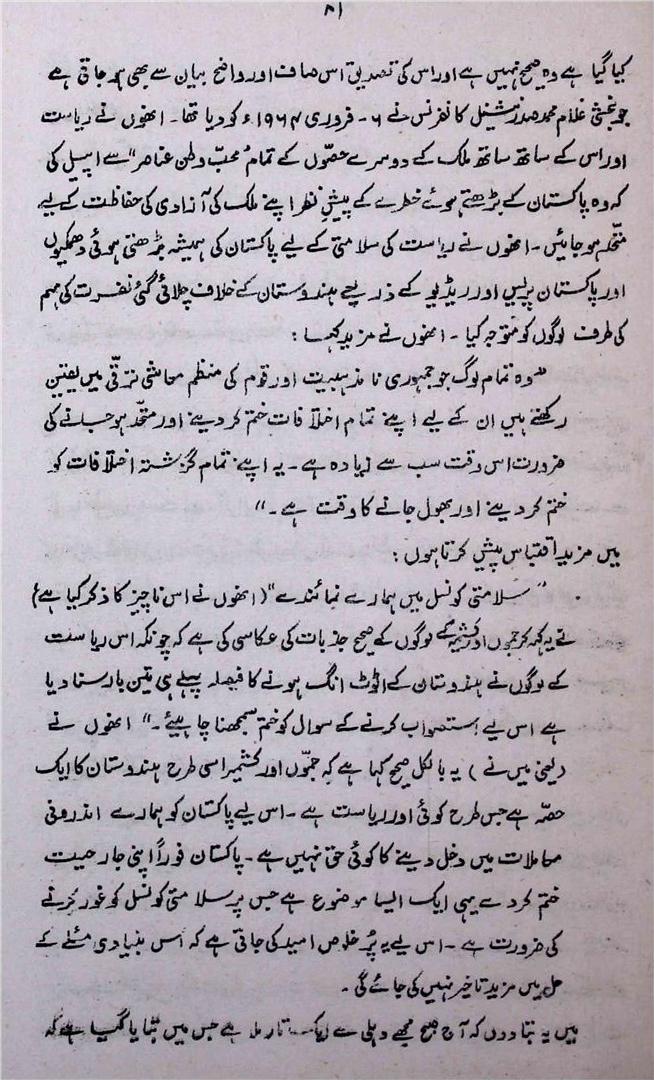 ۸۱
کیا گیا ہے وہ صحیح نہیں ہے اور اس کی تصدیق اس صاف اور واضح بیان سے بھی ہو جاتی ہے
جو بخشی غلام محمد صدر نیشنل کانفرنس نے ۶۔ فروری ۱۹۶۴ء کو دیا تھا۔ انھوں نے ریاست
اور اس کے ساتھ ساتھ ملک کے دوسرے حصّوں کے تمام "محبّ وطن عناصر" سے اپیل کی
کہ وہ پاکستان کے بڑھتے ہوئے خطرے کے پیشِ نظر اپنے ملک کی آزادی کی حفاظت کے لیے
متّحد ہو جائیں۔ انھوں نے ریاست کی سلامتی کے لیے پاکستان کی ہمیشہ بڑھتی ہوئی دھمکیوں
اور پاکستان پریس اور ریڈیو کے ذریعے ہندوستان کے خلاف چلائی گئی نفرت کی مہم
کی طرف لوگوں کو متوجہ کیا۔ انھوں نے مزید کہا:
"وہ تمام لوگ جو جمہوری نامذہبیت اور قوم کی منظم معاشی ترقّی میں یقین
رکھتے ہیں ان کے لیے اپنے تمام اختلافات ختم کر دینے اور متّحد ہو جانے کی
ضرورت اس وقت سب سے زیادہ ہے۔ یہ اپنے تمام گزشتہ اختلافات کو
ختم کر دینے اور بھول جانے کا وقت ہے۔"
میں مزید اقتباس پیش کرتا ہوں:
"سلامتی کونسل میں ہمارے نمائندے" (انھوں نے اس ناچیز کا ذکر کیا ہے)
نے یہ کہہ کر جموں اور کشمیر کے لوگوں کے صحیح جذبات کی عکاسی کی ہے کہ چونکہ اس ریاست
کے لوگوں نے ہندوستان کے اٹوٹ انگ ہونے کا فیصلہ پہلے ہی تین بار سنا دیا
ہے اس لیے استصواب کرنے کے سوال کو ختم سمجھنا چاہیئے۔" انھوں نے
(یعنی میں نے) یہ بالکل صحیح کہا ہے کہ جمّوں اور کشمیر اسی طرح ہندوستان کا ایک
حصّہ ہے جس طرح کوئی اور ریاست ہے۔ اس لیے پاکستان کو ہمارے اندرونی
معاملات میں دخل دینے کا کوئی حق نہیں ہے۔ پاکستان فوراً اپنی جارحیت
ختم کر دے یہی ایک ایسا موضوع ہے جس پر سلامتی کونسل کو غور کرنے
کی ضرورت ہے۔ اس لیے یہ پُر خلوص امید کی جاتی ہے کہ اس بنیادی مسئلے کے
حل میں مزید تاخیر نہیں کی جائے گی۔
میں یہ بتا دوں کہ آج صبح مجھے دہلی سے ایک تار ملا ہے جس میں بتایا گیا ہے کہ